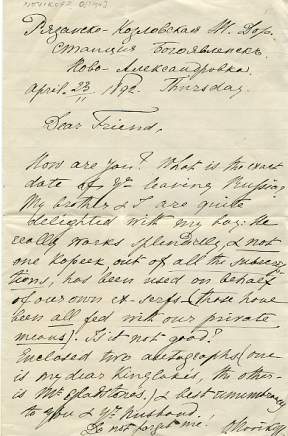 Рязанско-Козловская Ж. Дор.
Станция Богоявленскъ.
Ново-Александровка.
April. 23. 1892. Thursday.
11
Dear Friend,
How are you? What is the exact
date of Yr leaving Russia?
My brother & I are quite
delighted with my boy: He
really works splendidly, & not
one kopeck out of all the subscrip-
tions, has been used on behalf
of our own ex-serfs (those have
been all fed with our private
means). Is it not good?
Enclosed two autographs (one
is my dear Kinglake's, the other-
is Mr Gladstone's) & best remembrances
to you & Yr Husband.
Do not forget me!